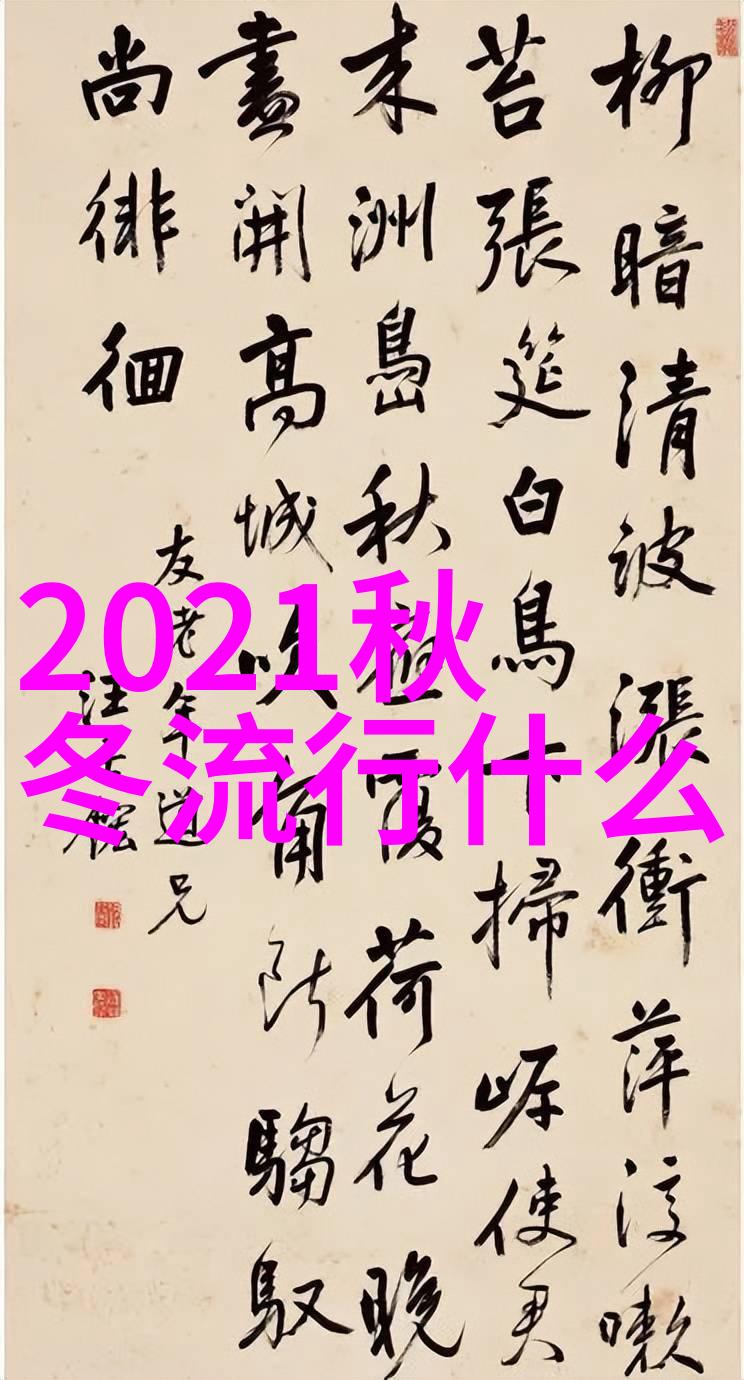 柳暗清波漲衝萍復嗽
苔張筵白鳥下掃岸使君
来洲島秋應荷花晚
盡開高城吹角斷騶馭
尚徘徊
友老年道兄
汪士鋐
2021秋
冬流行什么